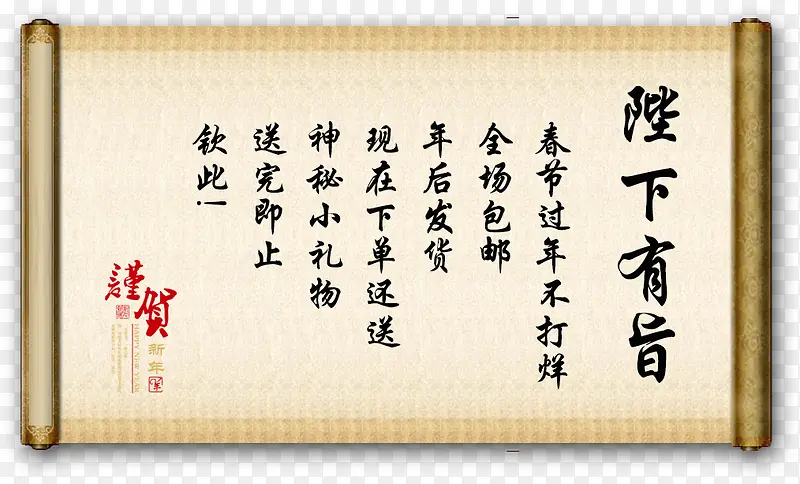 陛下有旨
春节过年不打烊
全场包邮
年后发货
现在下单还送
神秘小礼物
送完即止
钦此!
謹賀
新年
HAPPY NEW YEAR